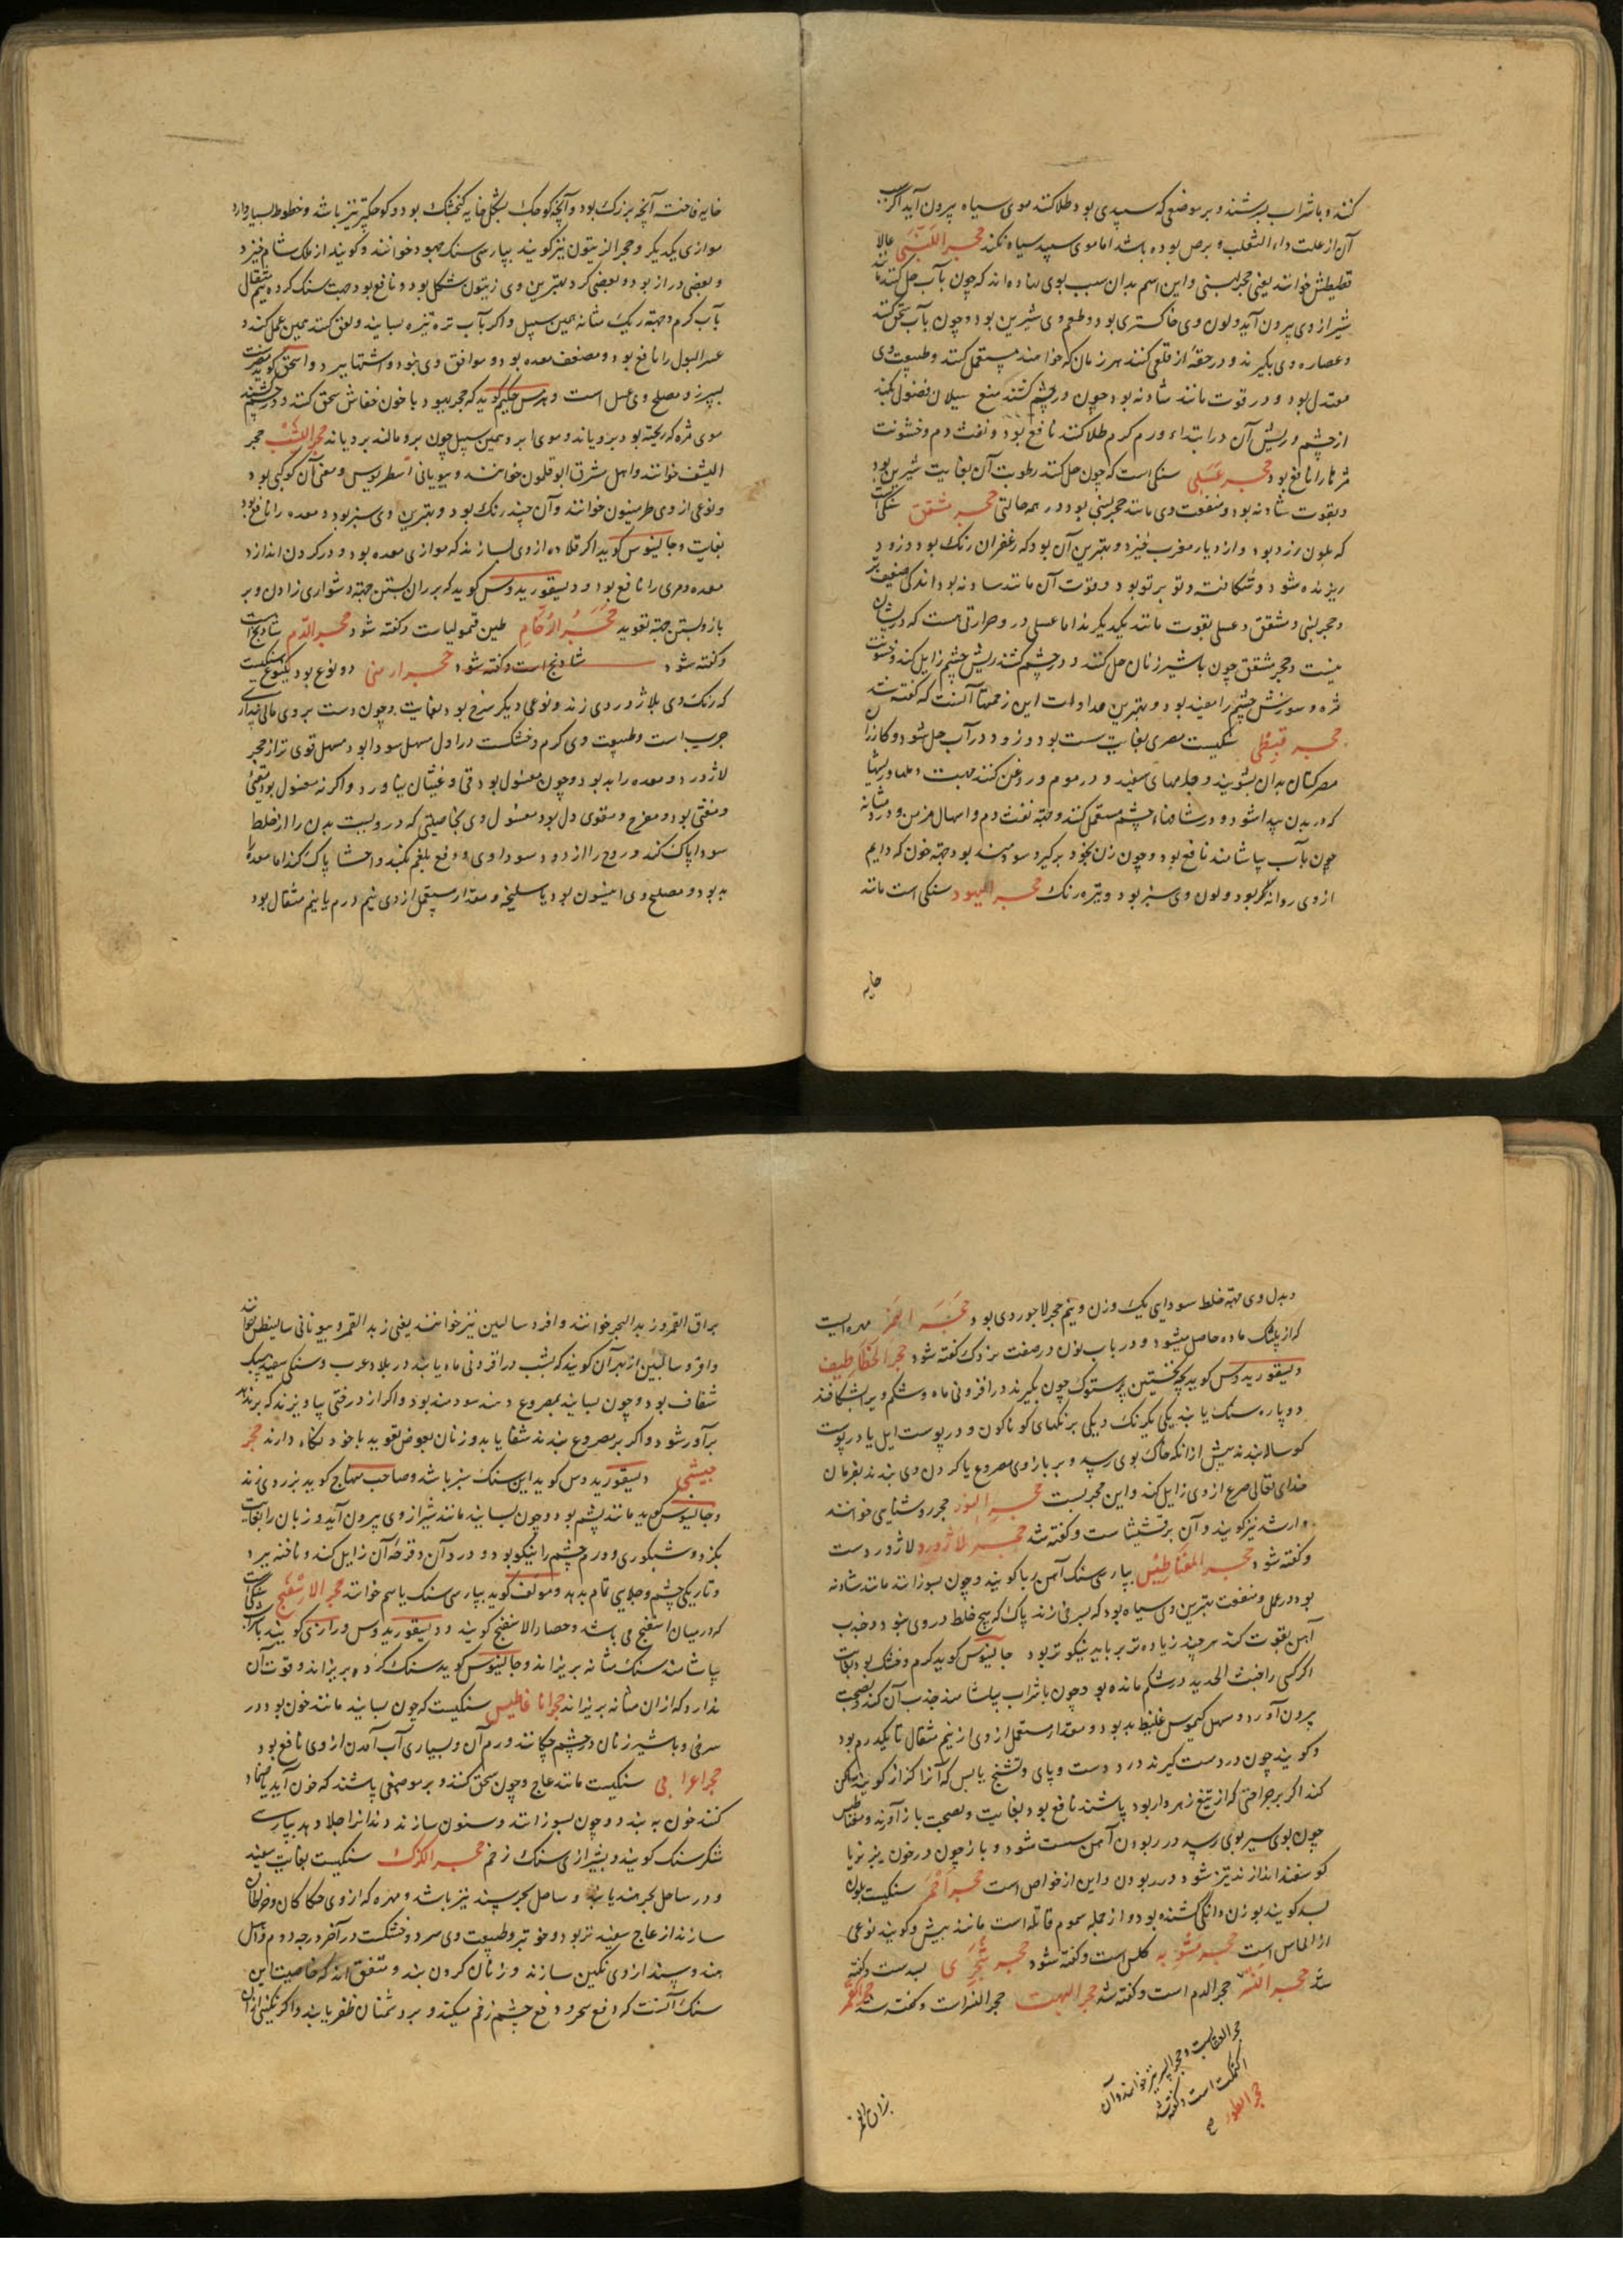 کنند و با شراب بسرشند و بر موضعی که سپیدی بود طلا کنند موی سیاه بیرون آید اگر سبب
آن از علت داء الثعلب و برص بوده باشد اما موی سپید سیاه نکند حجر اللبنی غالا
قطیطش خوانند یعنی حجر لبنی و این اسم بدان سبب بوی نهاده اند که چون بآب حل کنند مانند
شیر از وی بیرون آید و لون وی خاکستری بود و طعم وی شیرین بود و چون بآب سحق کنند
و عصاره وی بگیرند و در حقهٔ از قلعی کنند هر زمان که خواهند مستعمل کنند و طبیعت وی
معتدل بود و در قوت مانند شادنه بود چون در چشم کشند منع سیلان فضول بکند
از چشم و ریش آن در ابتداء ورم گرم طلا کنند نافع بود و نفث دم و خشونت
مژه را نافع بود حجر عسلی سنکی است که چون حل کنند رطوبت آن بغایت شیرین بود
و بقوت شادنه بود و منفعت وی مانند حجر لبنی بود در همه حالتی حجر مشقق سنکی است
که بلون زرد بود و از دیار مغرب خیزد و بهترین آن بود که زعفران رنک بود و زود
ریزنده شود و شکافنده و تو برتو بود و قوت آن مانند شادنه بود اندکی ضعیف تر
و حجر لبنی و مشقق و عسلی بقوت مانند یکدیگرند اما عسلی در و حرارتی هست که در ایشان
نیست و حجر مشقق چون با شیر زنان حل کنند و در چشم کشند ریش چشم زایل کند و خشونت
مژه و سوزش چشم را مفید بود و بهترین مداوات این زحمتها آنست که گفته شد
حجر قبطی سنکیست مصری بغایت سست بود و زود در آب حل شود و کازران
مصر کتان بدان بشویند و جامهای سفید و در موم و روغن کنند جهت دملها و ریشها
که در بدن پیدا شود و در شیافهاء چشم مستعمل کنند و جهة نفث دم و اسهال مزمن و درد مثانه
چون بآب بیاشامند نافع بود و چون زن بخود برگیرد سودمند بود جهة خون که دایم
از وی روانه گر بود و لون وی سبز بود و تیره رنک حجر الیهود سنکی است مانند
خایه
خایه فاخته آنچه بزرگ بود و آنچه کوچک بشکل خایه گنجشک بود و کوچکتر نیز باشد و خطوط بسیار دارد
موازی یکدیگر و حجر الزیتون نیز گویند بپارسی سنک جهود خوانند و گویند از ملک شام خیزد
و بعضی دراز بود و بعضی گرد و بهترین وی زیتون شکل بود و نافع بود جهت سنک گرده نیم مثقال
بآب گرم و جهة ریک مثانه همین سبیل و اگر بآب تره تیزه بسایند و لعق کنند همین عمل کند و
عسر البول را نافع بود و مضعف معده بود و موافق وی نبود و اشتها ببرد و اسحق گوید مضرست
بسپرز و مصلح وی عسل است و هرمس حکیم گوید که حجر یهود با خون خفاش سحق کنند و در چشم کشند
موی مژه که ریخته بود برویاند و موی ابرو همین سبیل چون برو مالند برویاند حجر الیشب حجر
الیشف خوانند و اهل مشرق ابو قلمون خوانند و بیونانی اسطریوس و معنی آن کوکبی بود
و نوعی از وی طرمینون خوانند و آن چند رنک بود و بهترین وی سبز بود و معده را نافع بود
بغایت و جالینوس گوید اگر قلاده از وی بسازند که موازی معده بود و در گردن اندازد
معده و مری را نافع بود و دیسقوریدوس گوید که بر ران بستن جهة دشواری زادن و بر
بازو بستن جهة تعویذ حجر الرخام طین قیمولیاست و گفته شود حجر الدم شادنج است
و گفته شود شادنج است و گفته شود حجر ارمنی دو نوع بود یک نوع سنکیست
که رنک وی بلاژورد زند و نوعی دیگر سرخ بود بغایت و چون دست بر وی مالی پنداری
چربست و طبیعت وی گرم و خشکست در اول مسهل سودا بود مسهل قوی تر از حجر
لاژورد و معده را بد بود و چون مغسول بود قی و غثیان نیاورد و اگر نه مغسول بود مقیّ
و منقی بود و مفرح و مقوی دل بود مغسول وی بخاصیتی که در ویست بدن را از خلط
سودا پاک کند و روح را از دود سوداوی و دفع بلغم بکند و احشا پاک کند اما معده را
بد بود و مصلح وی انیسون بود یا سلیخه و مقدار مستعمل از وی نیم درم یا نیم مثقال بود
و بدل وی جهة خلط سودایی یک وزن و نیم حجر لاجوردی بود حجر النمر مهره ایست
که از پلنک ماده حاصل میشود و در باب نون در صفت نمر گفته شود حجر الخطاطیف
دیسقوریدوس گوید بچه نخستین پرستوک چون بگیرند در افزونی ماه و شکم ویرا بشکافند
دو پاره سنک یابند یکی یکرنک و یکی برنکهای گوناگون و در پوست ایل یا در پوست
گوساله بندند پیش از آنکه خاک بوی رسد و بر بازوی مصروع یا گردن وی بندند بفرمان
خدای تعالی صرع از وی زایل کند و این مجربست حجر النور حجر روشنایی خوانند
و ارشد نیز گویند و آن مرقشیثاست و گفته شد حجر لاژورد لاژوردست
و گفته شود حجر المغناطیس بپارسی سنک آهن ربا گویند و چون بسوزانند مانند شادنه
بود در عمل و منفعت بهترین وی سیاه بود که بسرخی زند پاک که هیچ خلط در وی نبود و جذب
آهن بقوت کند هر چند زیاده تر رباید نیکوتر بود جالینوس گوید گرم و خشک بود بغایت
اگر کسی را خبث الحدید در شکم مانده بود چون با شراب بیاشامند جذب آن کند و بصحبت
بیرون آورد و مسهل کیموس غلیظ بد بود و مقدار مستعمل از وی از نیم مثقال تا یکدرم بود
و گویند چون در دست گیرند درد دست و پای و تشنج یابس که آنرا کزاز گویند ساکن
کند اگر بر جراحتی که از تیغ زهردار بود پاشند نافع بود بغایت و بصحت باز آورند و مغناطیس
چون بوی سیر بوی رسد در ربودن آهن سست شود و باز چون در خون بز نر یا
گوسفند اندازند تیز شود در ربودن و این از خواص است حجر احمر سنکیست بلون
بسد گویند بوزن دانگی کشنده بود و از جمله سموم قاتله است مانند بیش و گویند نوعی
از الماس است حجر مشویه کلس است و گفته شود حجر شجری بسدست و گفته
شد حجر الد حجر الدم است و گفته شد حجر البهت حجر الغراست و گفته شد حجر القمر
حجر العقابست و حجر النسر نیز خوانند و آن
اکتمکت است و گفته شد
حجر الطور
بزاق القمر
بزاق القمر و زبد البحر خوانند و افروسالین نیز خوانند یعنی زبد القمر و بیونانی سالینطس خوانند
و افروسالین از بهر آن گویند که بشب در افزونی ماه یابند در بلاد عرب و سنکی سفید سبک
شفاف بود و چون بسایند بمصروع دهند سودمند بود و اگر از درختی بیاویزند که بر ندهد
برآور شود و اگر بر مصروع بندند شفا یابد و زنان بعوض تعویذ با خود نگاه دارند حجر
حبشی دیسقوریدوس گوید این سنک سبز باشد و صاحب منهاج گوید بزردی زند
و جالینوس گوید مانند یشم بود و چون بسایند مانند شیر از وی بیرون آید و زبان را بغایت
بگزد و شبکوری و ورم چشم را نیکو بود و درد آن و قرحهٔ آن زایل کند و ناخنه ببرد
و تاریکی چشم و جلایی تمام بدهد و مولف گوید بپارسی سنک یاسم خوانند حجر الاسفنج سنکی است
که در میان اسفنج می باشد و حصاة الاسفنج گویند و دیسقوریدوس و رازی گویند با شراب
بیاشامند سنک مثانه بریزاند و جالینوس گوید سنک گرده بریزاند و قوت آن
ندارد که از آن مثانه بریزاند حجر اناغاطیس سنکیست که چون بسایند مانند خون بود در
سرخی و با شیر زنان در چشم چکانند ورم آن و بسیاری آب آمدن از وی نافع بود
حجر اعرابی سنکیست مانند عاج و چون سحق کنند و بر موضعی پاشند که خون آید یا ضماد
کنند خون ببندد و چون بسوزانند و سنون سازند دندانرا جلا دهد بپارسی
شکر سنک گویند و بشیرازی سنک زخم حجر الکرک سنکیست بغایت سفید
و در ساحل بحر هند یابند و ساحل بحر سند نیز باشد و مهره که از وی حکاکان و خراطان
سازند از عاج سفیدتر بود و خوبتر و طبیعت وی سرد و خشکست در آخر درجه دوم و اهل
هند و سند از وی نگین سازند و زنان گردن بند و متفق اند که خاصیت این
سنک آنست که دفع سحر و دفع چشم زخم میکند و بر دشمنان ظفر یابند و اگر نگینی از آن